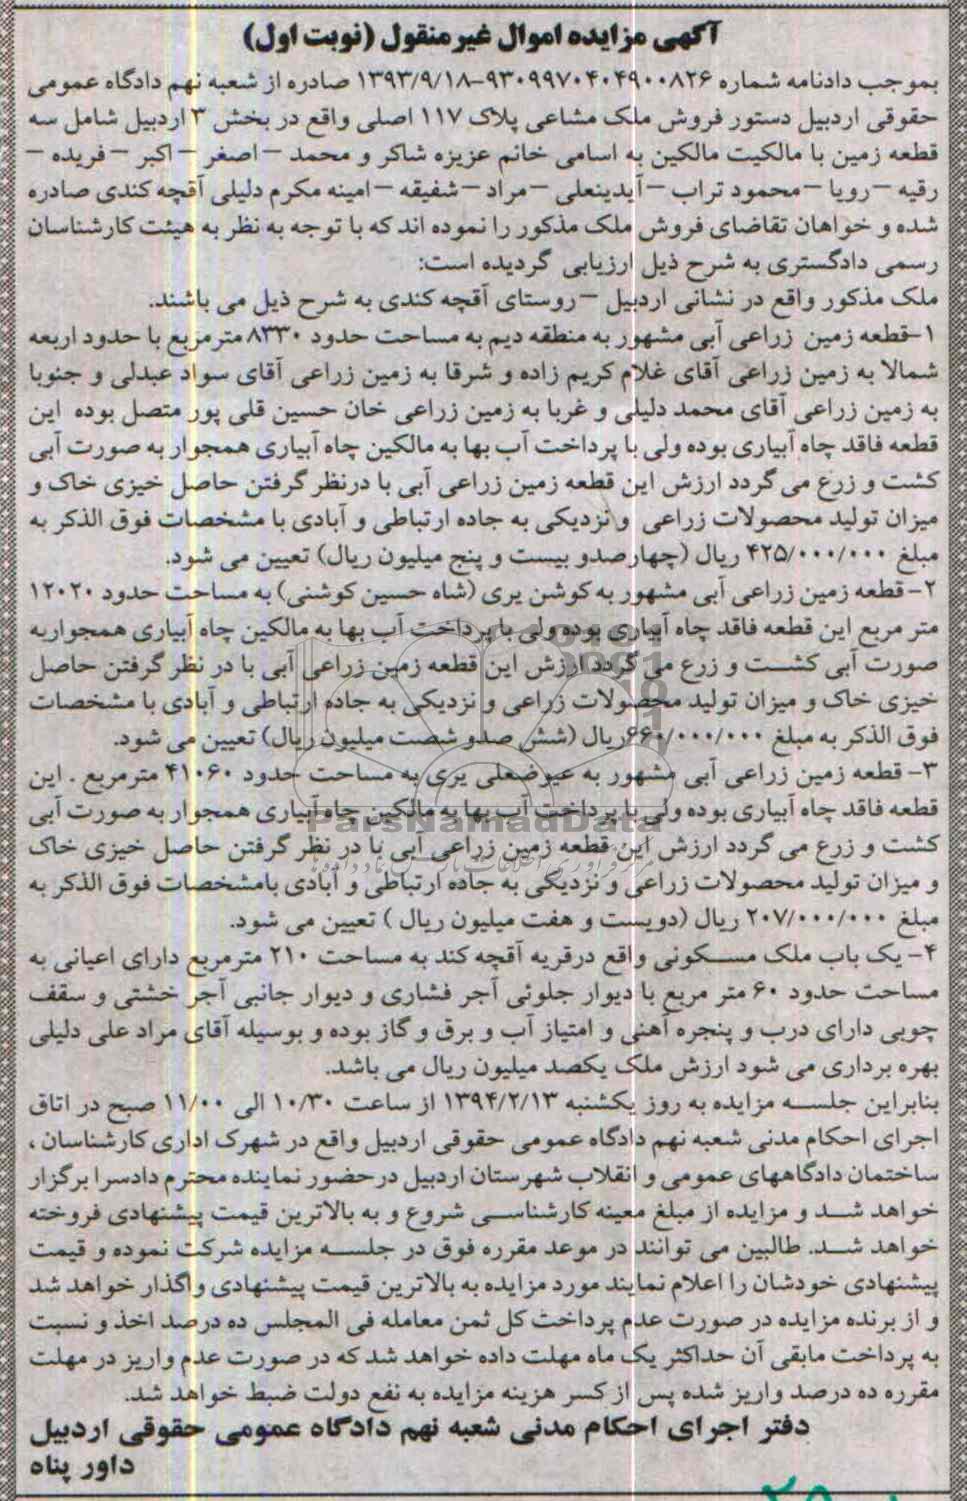 آگهی مزایده اموال غیرمنقول (نوبت اول)
بموجب دادنامه شماره ۹۳۰۹۹۷۰۴۰۴۹۰۰۸۲۶-۱۳۹۳/۹/۱۸ صادره از شعبه نهم دادگاه عمومی
حقوقی اردبیل دستور فروش ملک مشاعی پلاک ۱۱۷ اصلی واقع در بخش ۳ اردبیل شامل سه
قطعه زمین با مالکیت مالکین به اسامی خانم عزیزه شاکر و محمد -اصغر -اکبر -فریده -
رقیه -رویا -محمود تراب -آیدینعلی -مراد -شفیقه -امینه مکرم دلیلی آقچه کندی صادره
شده و خواهان تقاضای فروش ملک مذکور را نموده اند که با توجه به نظر به هیئت کارشناسان
رسمی دادگستری به شرح ذیل ارزیابی گردیده است:
ملک مذکور واقع در نشانی اردبیل -روستای آقچه کندی به شرح ذیل می باشند.
۱-قطعه زمین زراعی آبی مشهور به منطقه دیم به مساحت حدود ۸۳۳۰ مترمربع با حدود اربعه
شمالا به زمین زراعی آقای غلام کریم زاده و شرقا به زمین زراعی آقای سواد عبدلی و جنوبا
به زمین زراعی آقای محمد دلیلی و غربا به زمین زراعی خان حسین قلی پور متصل بوده این
قطعه فاقد چاه آبیاری بوده ولی با پرداخت آب بها به مالکین چاه آبیاری همجوار به صورت آبی
کشت و زرع می گردد ارزش این قطعه زمین زراعی آبی با درنظر گرفتن حاصل خیزی خاک و
میزان تولید محصولات زراعی و نزدیکی به جاده ارتباطی و آبادی با مشخصات فوق الذکر به
مبلغ ۴۲۵/۰۰۰/۰۰۰ ریال (چهارصدو بیست و پنج میلیون ریال) تعیین می شود.
۲- قطعه زمین زراعی آبی مشهور به کوشن یری (شاه حسین کوشنی) به مساحت حدود ۱۲۰۲۰
متر مربع این قطعه فاقد چاه آبیاری بوده ولی با پرداخت آب بها به مالکین چاه آبیاری همجواربه
صورت آبی کشت و زرع می گردد ارزش این قطعه زمین زراعی آبی با در نظر گرفتن حاصل
خیزی خاک و میزان تولید محصولات زراعی و نزدیکی به جاده ارتباطی و آبادی با مشخصات
فوق الذکر به مبلغ ۶۶۰/۰۰۰/۰۰۰ریال (شش صدو شصت میلیون ریال) تعیین می شود.
۳- قطعه زمین زراعی آبی مشهور به عیوضعلی یری به مساحت حدود ۴۱۰۶۰ مترمربع . این
قطعه فاقد چاه آبیاری بوده ولی با پرداخت آب بها به مالکین چاه آبیاری همجوار به صورت آبی
ParsNamadData
کشت و زرع می گردد ارزش این قطعه زمین زراعی آبی با در نظر گرفتن حاصل خیزی خاک
و میزان تولید محصولات زراعی و نزدیکی به جاده ارتباطی و آبادی بامشخصات فوق الذکر به
مبلغ ۲۰۷/۰۰۰/۰۰۰ ریال (دویست و هفت میلیون ریال ) تعیین می شود.
۴- یک باب ملک مسکونی واقع درقریه آقچه کند به مساحت ۲۱۰ مترمربع دارای اعیانی به
مساحت حدود ۶۰ متر مربع با دیوار جلوئی آجر فشاری و دیوار جانبی آجر خشتی و سقف
چوبی دارای درب و پنجره آهنی و امتیاز آب و برق و گاز بوده و بوسیله آقای مراد علی دلیلی
بهره برداری می شود ارزش ملک یکصد میلیون ریال می باشد.
بنابراین جلسه مزایده به روز یکشنبه ۱۳۹۴/۲/۱۳ از ساعت ۱۰/۳۰ الی ۱۱/۰۰ صبح در اتاق
اجرای احکام مدنی شعبه نهم دادگاه عمومی حقوقی اردبیل واقع در شهرک اداری کارشناسان ،
ساختمان دادگاههای عمومی و انقلاب شهرستان اردبیل درحضور نماینده محترم دادسرا برگزار
خواهد شد و مزایده از مبلغ معینه کارشناسی شروع و به بالاترین قیمت پیشنهادی فروخته
خواهد شد. طالبین می توانند در موعد مقرره فوق در جلسه مزایده شرکت نموده و قیمت
پیشنهادی خودشان را اعلام نمایند مورد مزایده به بالاترین قیمت پیشنهادی واگذار خواهد شد
و از برنده مزایده در صورت عدم پرداخت کل ثمن معامله فی المجلس ده درصد اخذ و نسبت
به پرداخت مابقی آن حداکثر یک ماه مهلت داده خواهد شد که در صورت عدم واریز در مهلت
مقرره ده درصد واریز شده پس از کسر هزینه مزایده به نفع دولت ضبط خواهد شد.
دفتر اجرای احکام مدنی شعبه نهم دادگاه عمومی حقوقی اردبیل
داور پناه